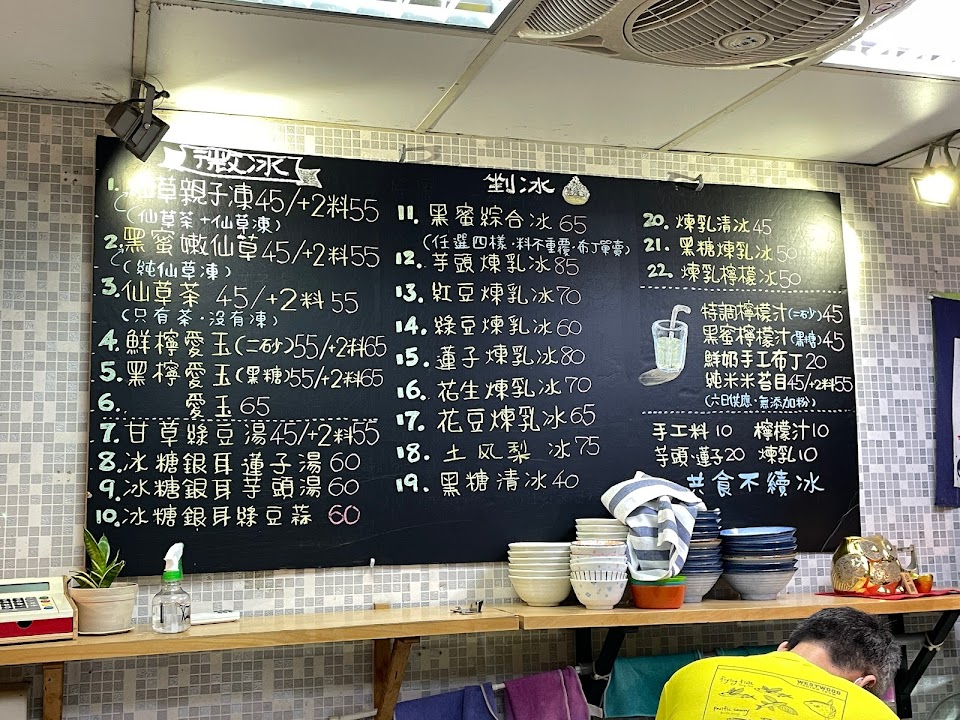 微冰
1. 仙草親子凍45/+2料55
(仙草茶+仙草凍)
2. 黑蜜嫩仙草45/+2料55
(純仙草凍)
3. 仙草茶 45/+2料 55
(只有茶·沒有凍)
4. 鮮檸愛玉(二砂)55/+2料65
5. 黑檸愛玉(黑糖)55/+2料65
6. 愛玉 65
7. 甘草綠豆湯45/+2料55
8. 冰糖銀耳蓮子湯 60
9. 冰糖銀耳芋頭湯 60
10. 冰糖銀耳綠豆蒜 60
剉冰
11. 黑蜜綜合冰 65
(任選四樣·料不重覆·布丁單賣)
12. 芋頭煉乳冰85
13. 紅豆煉乳冰70
14. 綠豆煉乳冰60
15. 蓮子煉乳冰80
16. 花生煉乳冰70
17. 花豆煉乳冰65
18. 土风梨 冰75
19. 黑糖清冰40
20. 煉乳清冰45
21. 黑糖煉乳冰50
22. 煉乳檸檬冰50
特調檸檬汁(二砂)45
黑蜜檸檬汁(黑糖)45
鮮奶手工布丁20
純米米苔目45/+2料55
(六日供應·無添加粉)
手工料 10 檸檬汁10
芋頭·蓮子20 煉乳10
共食不續冰
flying fish
WESTWOOD
pacific saury